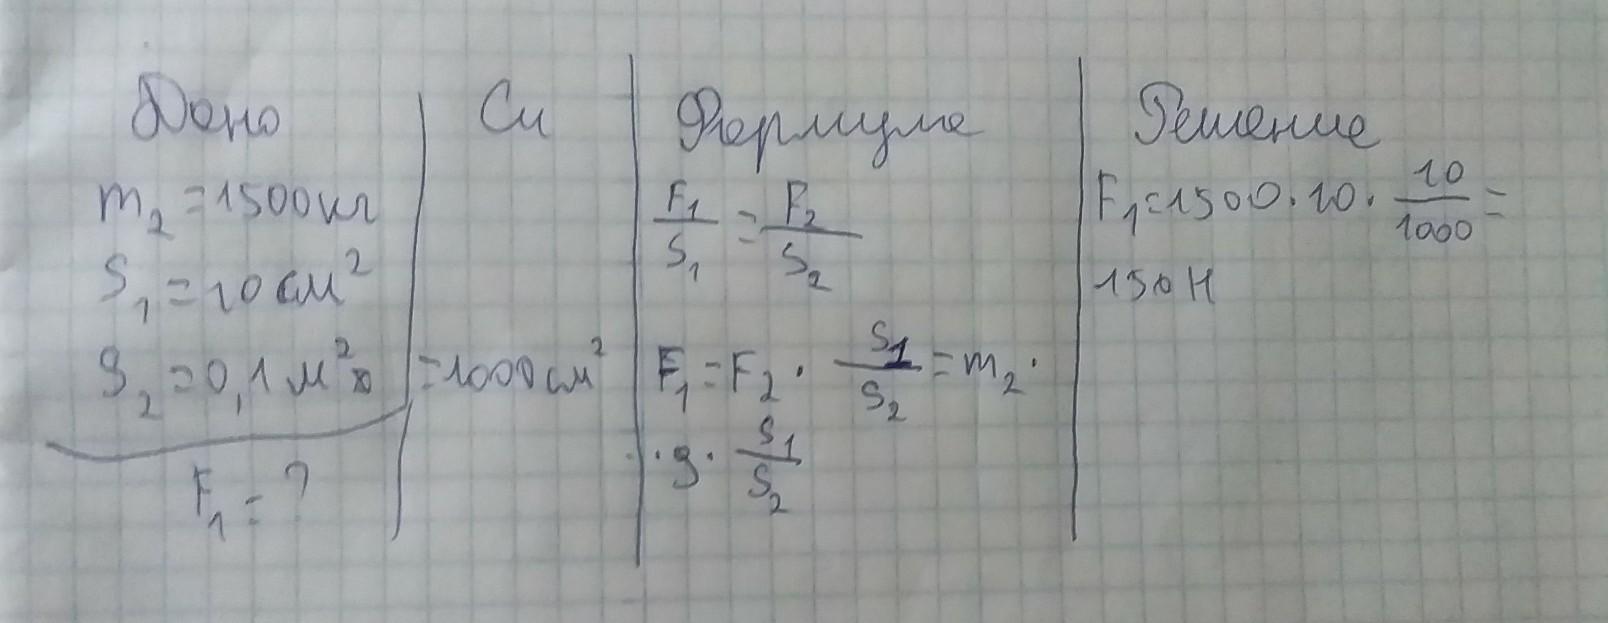 Дано
m₂ = 1500 кг
S₁ = 10 см²
S₂ = 0,1 м²
F₁ = ?
Си
= 1000 см²
Формула
F₁/S₁ = F₂/S₂
F₁ = F₂ · S₁/S₂ = m₂ ·
· g · S₁/S₂
Решение
F₁ = 1500 · 10 · 10/1000 =
150 Н